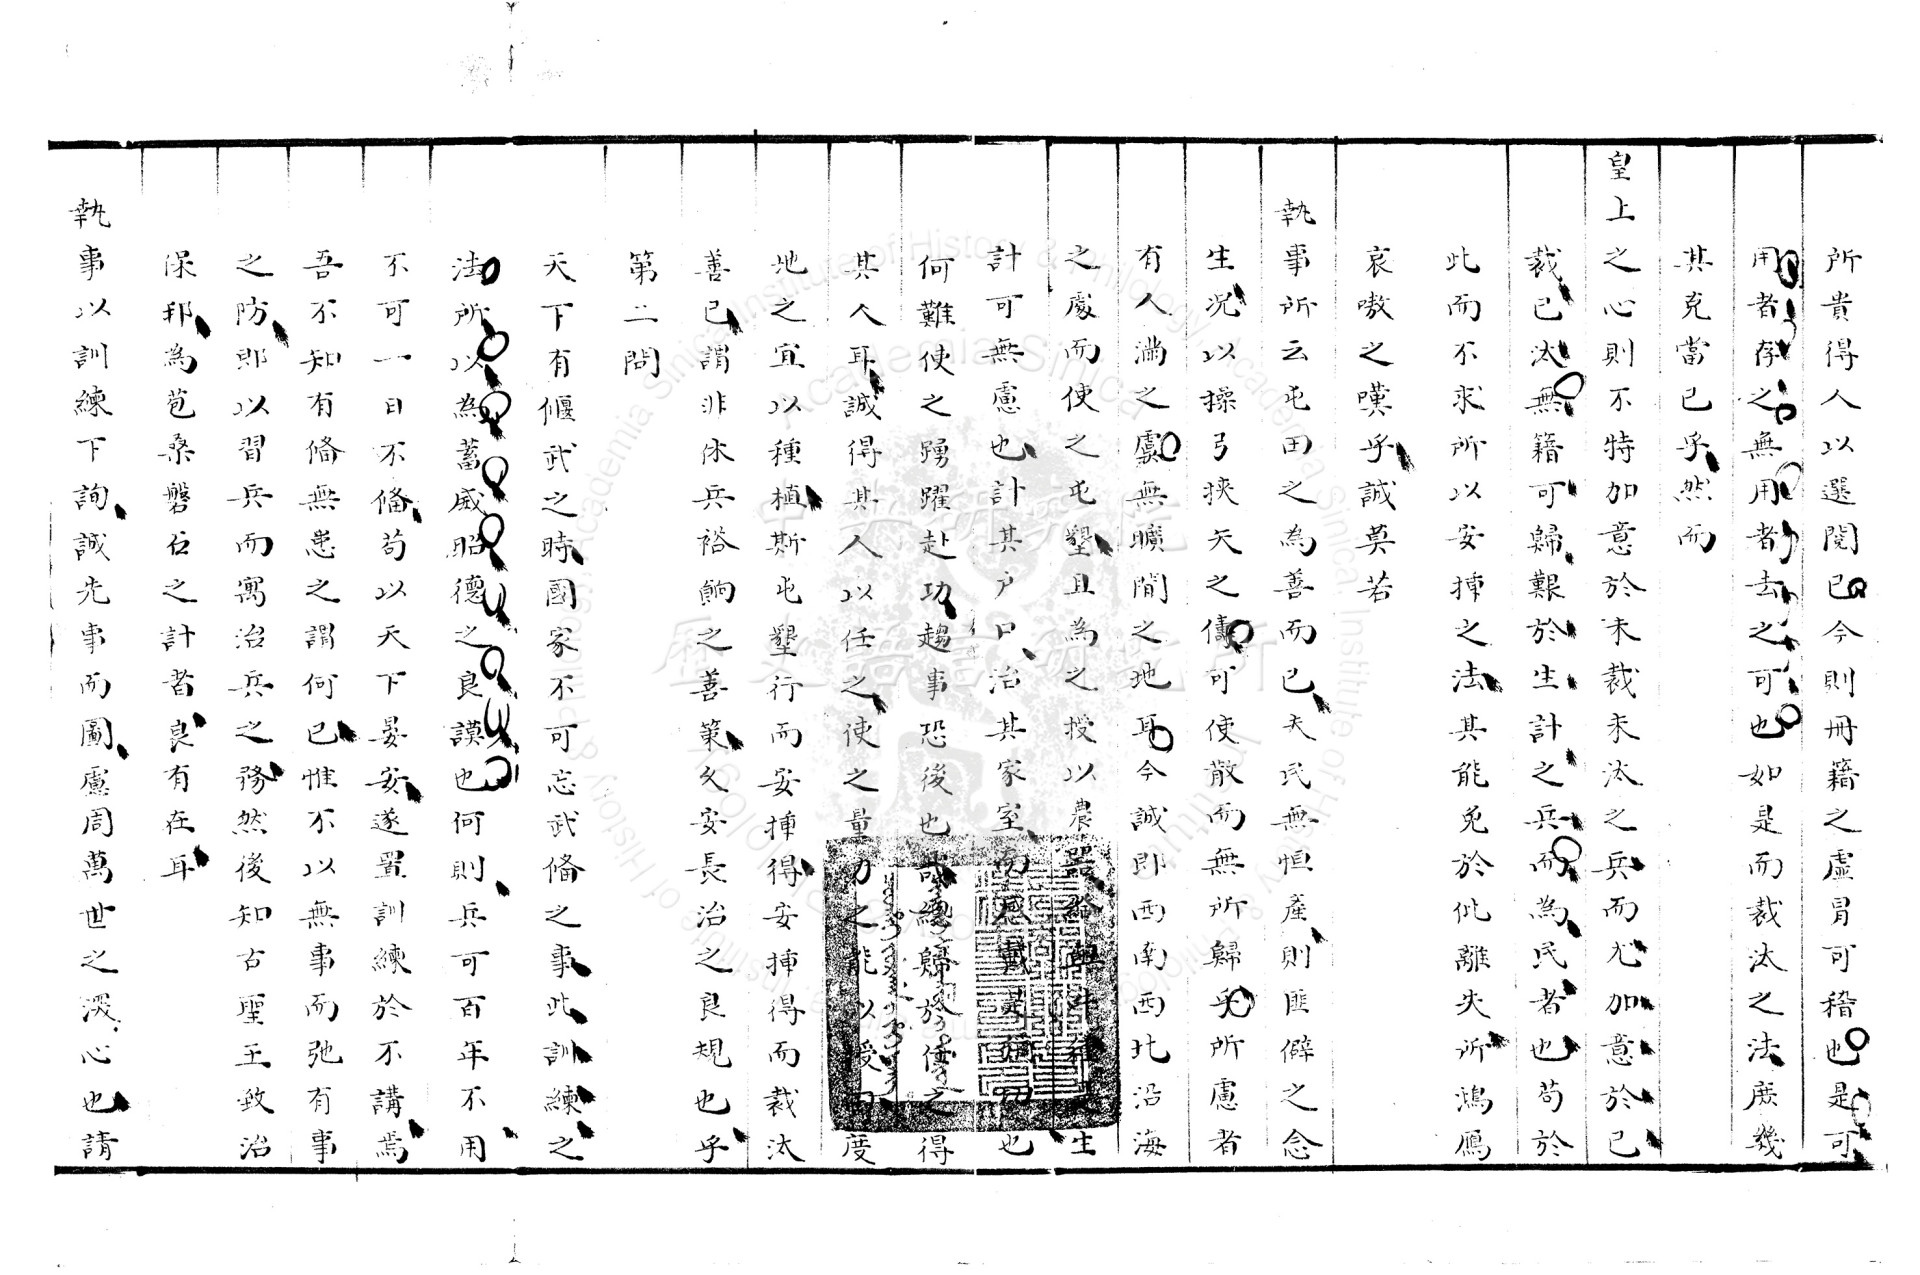 所貴得人以選閱已今則冊籍之虛冒可稽也是可
用者存之無用者去之可也如是而裁汰之法庶幾
其克當已乎然而
皇上之心則不特加意於未裁未汰之兵而尤加意於已
裁已汰無籍可歸艱於生計之兵而為民者也苟於
此而不求所以安揷之法其能免於仳離失所鴻鴈
哀嗷之嘆乎誠莫若
執事所云屯田之為善而已夫民無恒產則匪僻之念
生况以操弓挾矢之儔可使散而無所歸乎所慮者
有人滿之虞無曠閒之地耳今誠郎西南西北沿海
之處而使之屯墾且為之授以農器給與牛種是生
計可無慮也計其户口治其家室而感戴是切也
何難使之踴躍赴功趨事恐後也哉總歸於使之得
其人耳誠得其人以任之使之量力之能以授田度
地之宜以種植斯屯墾行而安揷得安揷得而裁汰
善已謂非休兵裕餉之善策乂安長治之良規也乎
第二問
天下有偃武之時國家不可忘武俻之事此訓練之
法所以為蓄威昭德之良謨也何則兵可百年不用
不可一日不俻苟以天下晏安遂置訓練於不講焉
吾不知有俻無患之謂何已惟不以無事而弛有事
之防郎以習兵而寓治兵之務然後知古聖王致治
保邦為苞桑磐石之計者良有在耳
執事以訓練下詢誠先事而圖慮周萬世之深心也請